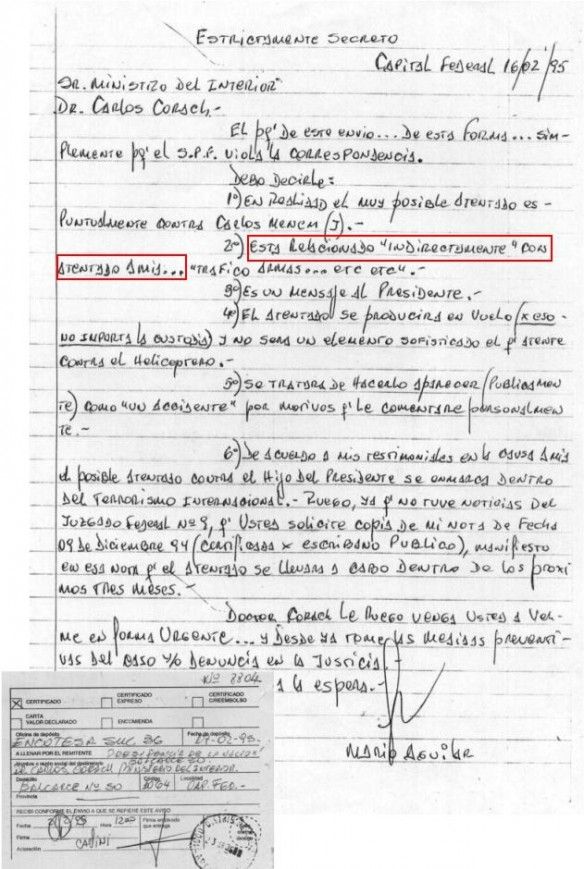 ESTRICTAMENTE SECRETO
CAPITAL FEDERAL 16/02/95
SR. MINISTRO DEL INTERIOR
DR. CARLOS CORACH.-
EL pq' DE ESTE ENVIO... DE ESTA FORMA... SIM-
PLEMENTE pq' EL S.P.F. VIOLA LA CORRESPONDENCIA.
DEBO DECIRLE:
1º) EN REALIDAD EL MUY POSIBLE ATENTADO ES
PUNTUALMENTE CONTRA CARLOS MENEM (J).-
2º) ESTA RELACIONADO "INDIRECTAMENTE" CON
ATENTADO AMIA... "TRAFICO ARMAS... ETC ETC".-
3º) ES UN MENSAJE AL PRESIDENTE.
4º) EL ATENTADO SE PRODUCIRA EN VUELO (x ESO
NO IMPORTA LA CUSTODIA) Y NO SERA UN ELEMENTO SOFISTICADO EL q' ATENTE
CONTRA EL HELICOPTERO.-
5º) SE TRATARA DE HACERLO APARECER (PUBLICAMEN
TE) COMO "UN ACCIDENTE" POR MOTIVOS q' LE COMENTARE PERSONALMEN
TE.-
6º) DE ACUERDO A MIS TESTIMONIALES EN LA CAUSA AMIA
EL POSIBLE ATENTADO CONTRA EL HIJO DEL PRESIDENTE SE ENMARCA DENTRO
DEL TERRORISMO INTERNACIONAL.- RUEGO, YA q' NO TUVE NOTICIAS DEL
JUZGADO FEDERAL Nº 9, q' USTED SOLICITE COPIA DE MI NOTA DE FECHA
09 DE DICIEMBRE 94 (CERTIFICADA x ESCRIBANO PUBLICO), MANIFIESTO
EN ESA NOTA q' EL ATENTADO SE LLEVARA A CABO DENTRO DE LOS PROXI
MOS TRES MESES.-
DOCTOR CORACH LE RUEGO VENGA USTED A VER-
ME EN FORMA URGENTE... Y DESDE YA TOME LAS MEDIDAS PREVENTI-
VAS DEL CASO Y/O DENUNCIA EN LA JUSTICIA.
A LA ESPERA.-
MARIO AGUILAR
Nº 8804
CERTIFICADO
CERTIFICADO EXPRESO
CERTIFICADO C/REEMBOLSO
CARTA VALOR DECLARADO
ENCOMIENDA
Oficina de depósito
Fecha de depósito
ENCOTESA SUC. 36
A LLENAR POR EL REMITENTE
BALCARCE 50
DR CARLOS CORACH (MINISTERIO DEL INTERIOR
Domicilio
Código
Localidad
BALCARCE Nº 50
1064
CAP. FED.-
Provincia
RECIBI CONFORME EL ENVIO A QUE SE REFIERE ESTE AVISO
Fecha
Hora
Firma
Aclaración